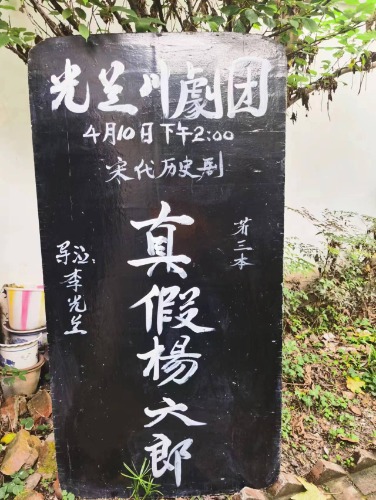 光兰川劇团
4月10日下午2:00
宋代历史剧
第三本
真假楊六郎
导演李光兰